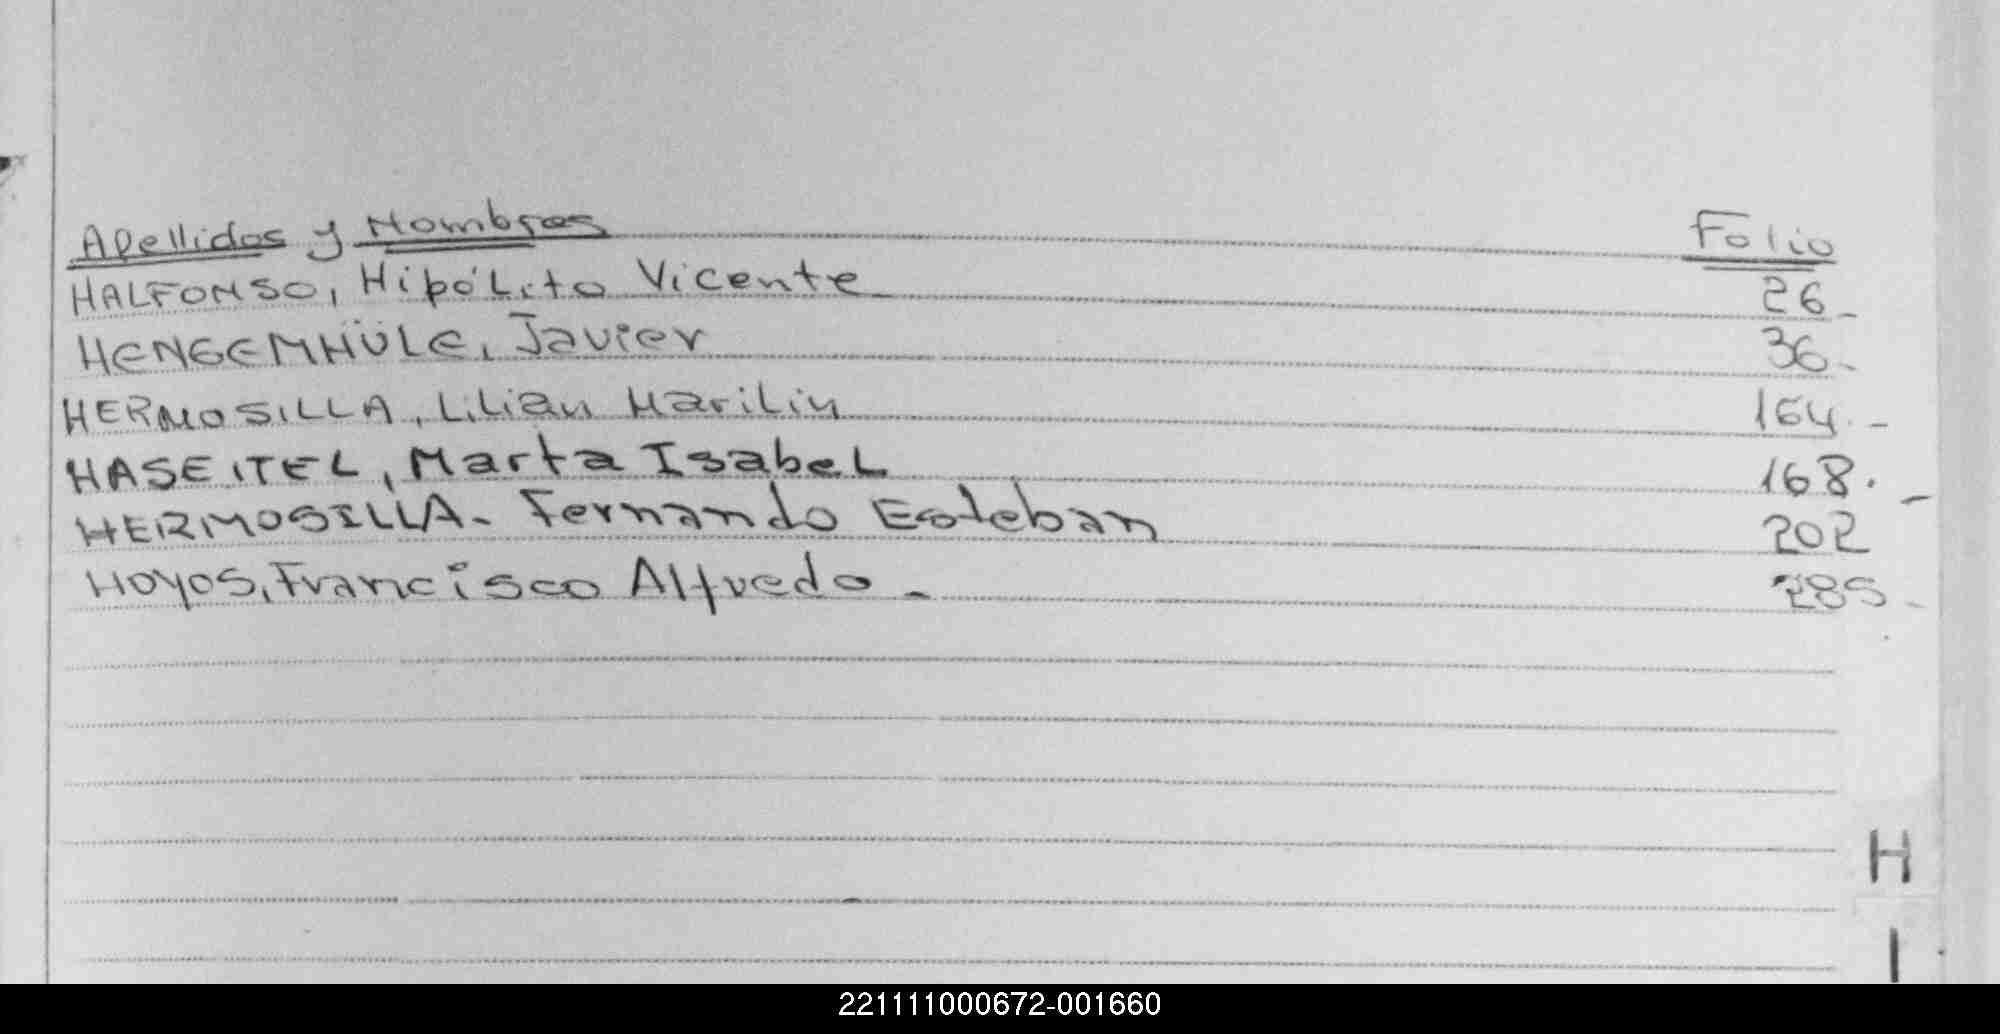 Apellidos y Nombres Folio
HALFONSO, HipóLito Vicente 26_
HENGEMHÜLE, Javier 36.-
HERMOSILLA, LiLian MariLin 164.-
HASEITEL, Marta IsabeL 168._
HERMOSILLA- Fernando Esteban 202
HOYOS, Francisco Alfredo.- 285-
H
I
221111000672-001660